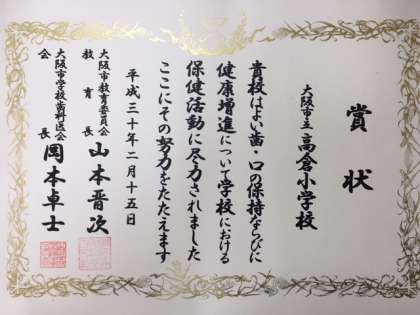 賞状
大阪市立 高倉小学校
貴校はよい歯・口の保持ならびに
健康増進について学校における
保健活動に尽力されました
ここにその努力をたたえます
平成三十年二月十五日
大阪市教育委員会
教育長 山本晋次
大阪市学校歯科医会
会長 岡本卓士